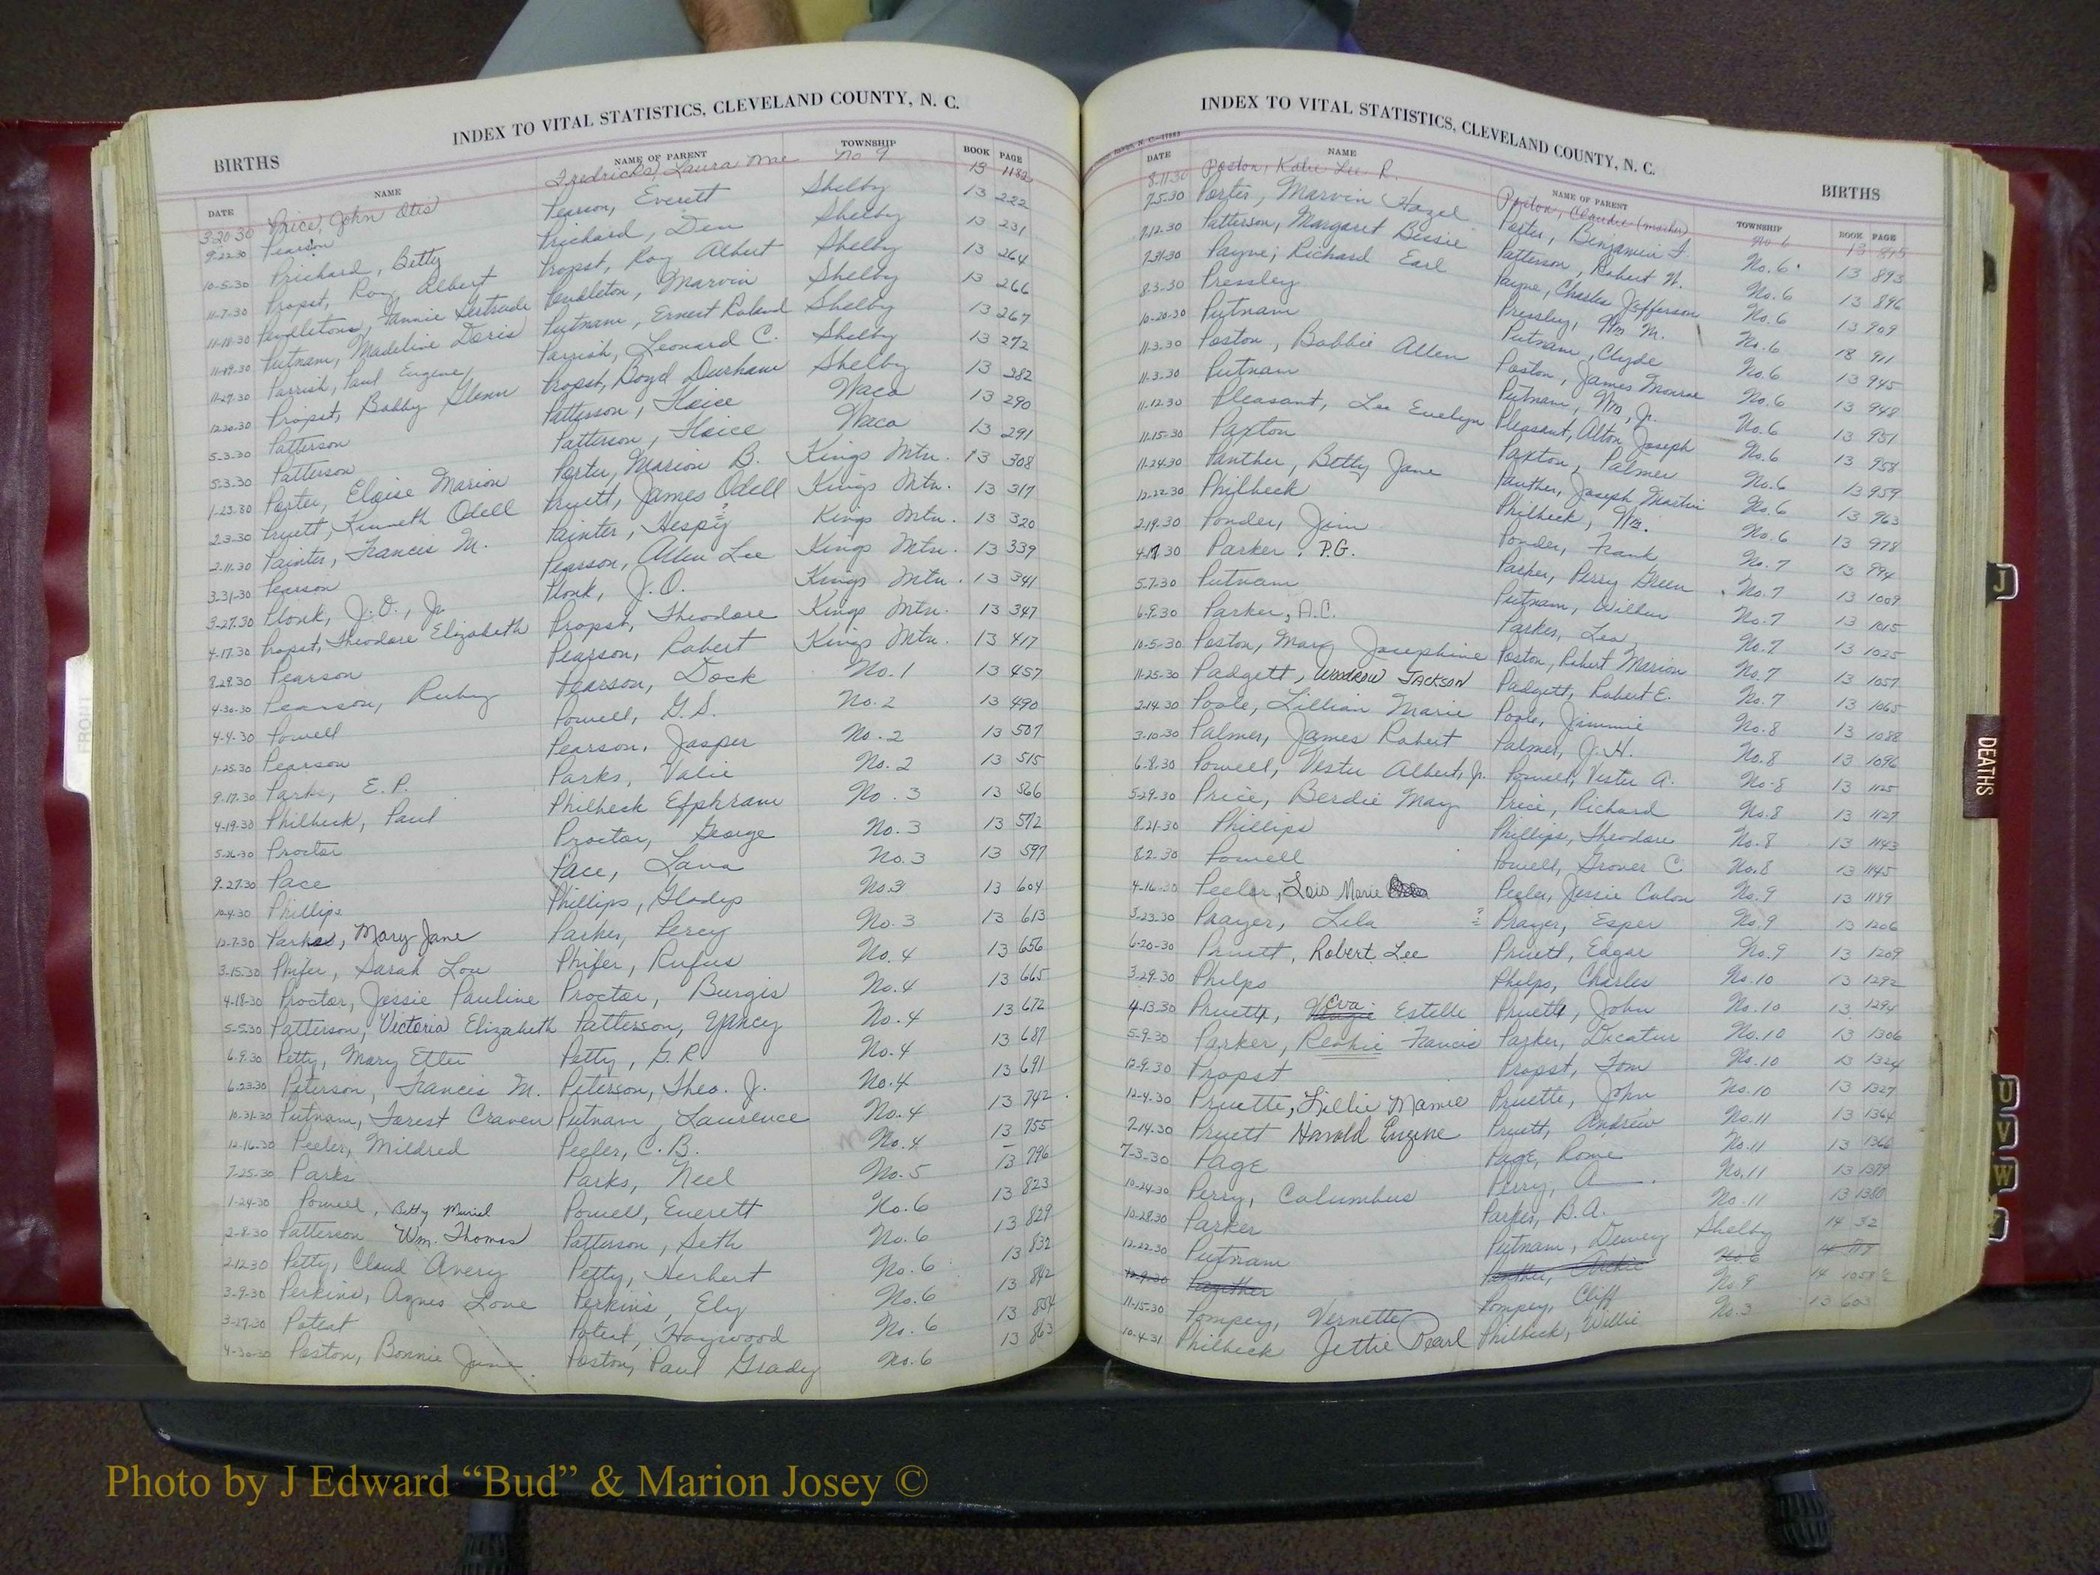 INDEX TO VITAL STATISTICS, CLEVELAND COUNTY, N. C.
BIRTHS
DATE NAME NAME OF PARENT TOWNSHIP BOOK PAGE
3-20-30 Price, John Otis Fredricks, Laura Mae No 9 13 1182
9-22-30 Pearson Pearson, Everett Shelby 13 222
10-5-30 Prichard, Betty Prichard, Den Shelby 13 231
11-7-30 Propst, Roy Albert Propst, Roy Albert Shelby 13 264
11-18-30 Pendleton, Fannie Gertrude Pendleton, Marvin Shelby 13 266
11-19-30 Putnam, Madeline Doris Putnam, Ernest Roland Shelby 13 267
11-27-30 Parrish, Paul Eugene Parrish, Leonard C. Shelby 13 272
12-20-30 Propst, Bobby Glenn Propst, Boyd Durham Shelby 13 282
5-3-30 Patterson Patterson, Hoice Waco 13 290
5-3-30 Patterson Patterson, Hoice Waco 13 291
1-23-30 Porter, Eloise Marion Porter, Marion B. Kings Mtn. 13 308
2-3-30 Pruett, Kenneth Odell Pruett, James Odell Kings Mtn. 13 317
2-11-30 Painter, Francis M. Painter, Hespy Kings Mtn. 13 320
3-31-30 Pearson Pearson, Allen Lee Kings Mtn. 13 339
3-27-30 Plonk, J.O., Jr. Plonk, J.O. Kings Mtn. 13 341
4-17-30 Propst, Theodore Elizabeth Propst, Theodore Kings Mtn. 13 347
8-29-30 Pearson Pearson, Robert Kings Mtn. 13 417
4-30-30 Pearson, Ruby Pearson, Dock No. 1 13 457
4-4-30 Powell Powell, G.S. No. 2 13 490
1-25-30 Pearson Pearson, Jasper No. 2 13 507
9-17-30 Parks, E.P. Parks, Valie No. 2 13 515
4-19-30 Philbeck, Paul Philbeck Efphram No. 3 13 566
5-21-30 Proctor Proctor, George No. 3 13 572
9-27-30 Pace Pace, Lava No. 3 13 597
10-4-30 Phillips Phillips, Gladys No. 3 13 604
12-7-30 Parker, Mary Jane Parker, Percy No. 3 13 613
3-15-30 Phifer, Sarah Lou Phifer, Rufus No. 4 13 656
4-18-30 Proctor, Jessie Pauline Proctor, Burgis No. 4 13 665
5-5-30 Patterson, Victoria Elizabeth Patterson, Yancey No. 4 13 672
6-9-30 Petty, Mary Etter Petty, G.R. No. 4 13 687
6-23-30 Peterson, Francis M. Peterson, Theo. J. No. 4 13 691
10-31-30 Putnam, Forest Craven Putnam, Laurence No. 4 13 742
12-16-30 Peeler, Mildred Peeler, C.B. No. 4 13 755
7-25-30 Parks Parks, Neel No. 5 13 796
1-24-30 Powell, Betty Muriel Powell, Everett No. 6 13 823
2-8-30 Patterson Wm. Thomas Patterson, Seth No. 6 13 829
2-12-30 Petty, Claud Avery Petty, Herbert No. 6 13 832
3-9-30 Perkins, Agnes Love Perkins, Ely No. 6 13 842
3-27-30 Poteat Poteat, Haywood No. 6 13 854
4-30-30 Poston, Bonnie June Poston, Paul Grady No. 6 13 863
INDEX TO VITAL STATISTICS, CLEVELAND COUNTY, N. C.
BIRTHS
DATE NAME NAME OF PARENT TOWNSHIP BOOK PAGE
8-11-30 Poston, Katie Lee R. Poston, Claudie (mother) No 6 13 895
7-5-30 Porter, Marvin Hazel Porter, Benjamin F. No. 6 13 893
7-12-30 Patterson, Margaret Bessie Patterson, Robert W. No. 6 13 896
7-31-30 Payne, Richard Earl Payne, Charles Jefferson No. 6 13 909
8-3-30 Pressley Pressley, Wm M. No. 6 13 911
10-20-30 Putnam Putnam, Clyde No. 6 13 945
11-3-30 Poston, Bobbie Allen Poston, James Monroe No. 6 13 948
11-3-30 Putnam Putnam, Wm, Jr. No. 6 13 951
11-12-30 Pleasant, Lee Evelyn Pleasant, Alton Joseph No. 6 13 958
11-15-30 Paxton Paxton, Palmer No. 6 13 959
11-24-30 Panther, Betty Jane Panther, Joseph Martin No. 6 13 963
12-22-30 Philbeck Philbeck, Wm. No. 6 13 978
2-19-30 Ponder, Jim Ponder, Frank No. 7 13 994
4-17-30 Parker, P.G. Parker, Perry Green No. 7 13 1009
5-7-30 Putnam Putnam, Wilbur No. 7 13 1015
6-9-30 Parker, A.C. Parker, Leo No. 7 13 1025
10-5-30 Poston, Mary Josephine Poston, Robert Marion No. 7 13 1057
11-25-30 Padgett, Woodrow Jackson Padgett, Robert E. No. 7 13 1065
2-14-30 Poole, Lillian Marie Poole, Jimmie No. 8 13 1088
3-10-30 Palmer, James Robert Palmer, J.H. No. 8 13 1096
6-8-30 Powell, Vester Albert, Jr. Powell, Vester A. No. 8 13 1125
5-29-30 Price, Berdie May Price, Richard No. 8 13 1127
8-21-30 Phillips Phillips, Theodore No. 8 13 1143
8-2-30 Powell Powell, Grover C. No. 8 13 1145
4-16-30 Peeler, Lois Marie Peeler, Jessie Colon No. 9 13 1189
3-23-30 Prayer, Lila ? Prayer, Esper No. 9 13 1206
6-20-30 Pruett, Robert Lee Pruett, Edgar No. 9 13 1209
3-29-30 Phelps Phelps, Charles No. 10 13 1292
4-13-30 Pruett, Eva Estelle Pruett, John No. 10 13 1294
5-9-30 Parker, Reakie Francis Parker, Decatur No. 10 13 1306
12-9-30 Propst Propst, Tom No. 10 13 1324
12-4-30 Pruette, Lillie Mamie Pruette, John No. 10 13 1327
2-14-30 Pruett Harold Eugene Pruett, Andrew No. 11 13 1364
7-3-30 Page Page, Rome No. 11 13 1366
10-24-30 Perry, Columbus Perry, A No. 11 13 1379
10-28-30 Parker Parker, B.A. No. 11 13 1380
12-22-30 Putnam Putnam, Dewey Shelby 14 52
12-9-30 Panther Panther, Archie No. 6
11-15-30 Pompey, Vernette Pompey, Cliff No. 9 14 1058½
10-4-31 Philbeck Jettie Pearl Philbeck, Willie No. 3 13 603
FRONT
J
DEATHS
U
V
W
Photo by J Edward “Bud” & Marion Josey ©